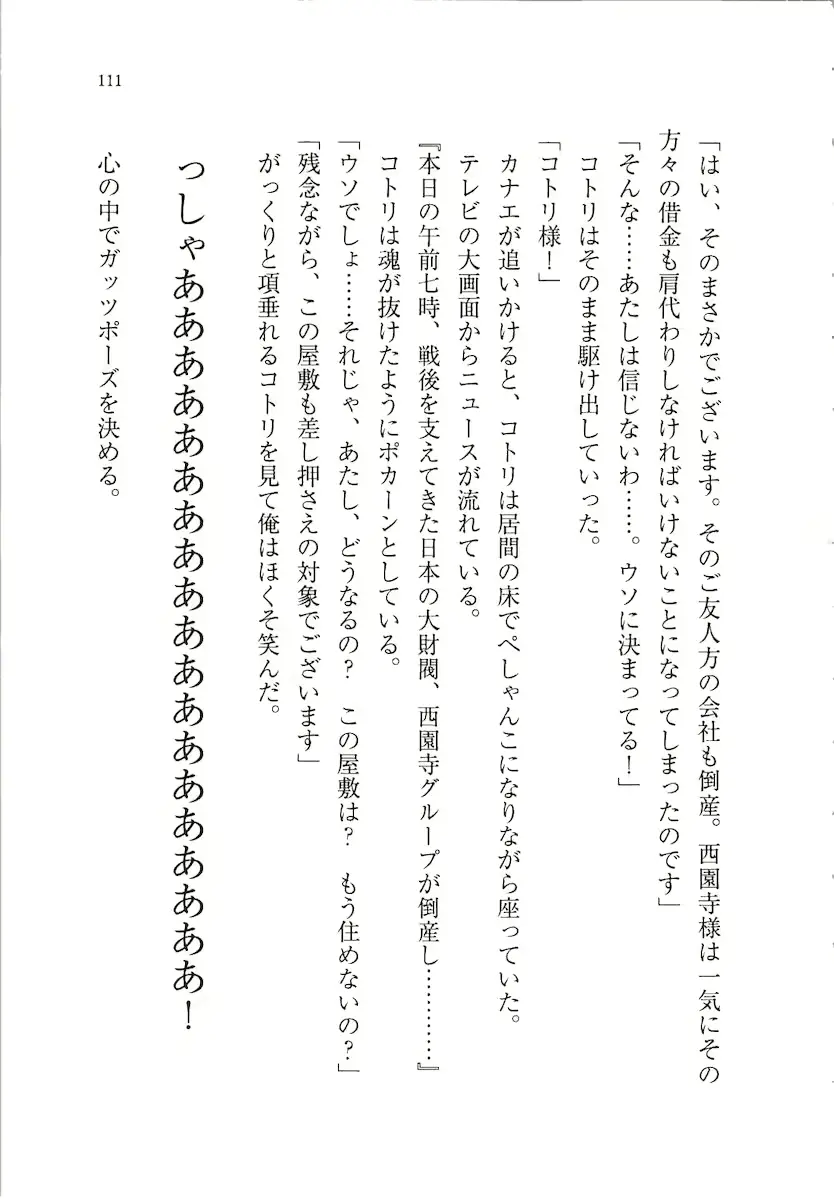 111
「はい、そのまさかでございます。そのご友人方の会社も倒産。西園寺様は一気にその
方々の借金も肩代わりしなければいけないことになってしまったのです」
「そんな……あたしは信じないわ……。ウソに決まってる！」
コトリはそのまま駆け出していった。
「コトリ様！」
カナエが追いかけると、コトリは居間の床でぺしゃんこになりながら座っていた。
テレビの大画面からニュースが流れている。
『本日の午前七時、戦後を支えてきた日本の大財閥、西園寺グループが倒産し…………』
コトリは魂が抜けたようにポカーンとしている。
「ウソでしょ……それじゃ、あたし、どうなるの？　この屋敷は？　もう住めないの？」
「残念ながら、この屋敷も差し押さえの対象でございます」
がっくりと項垂れるコトリを見て俺はほくそ笑んだ。
っしゃあああああああああああああああああああ！
心の中でガッツポーズを決める。